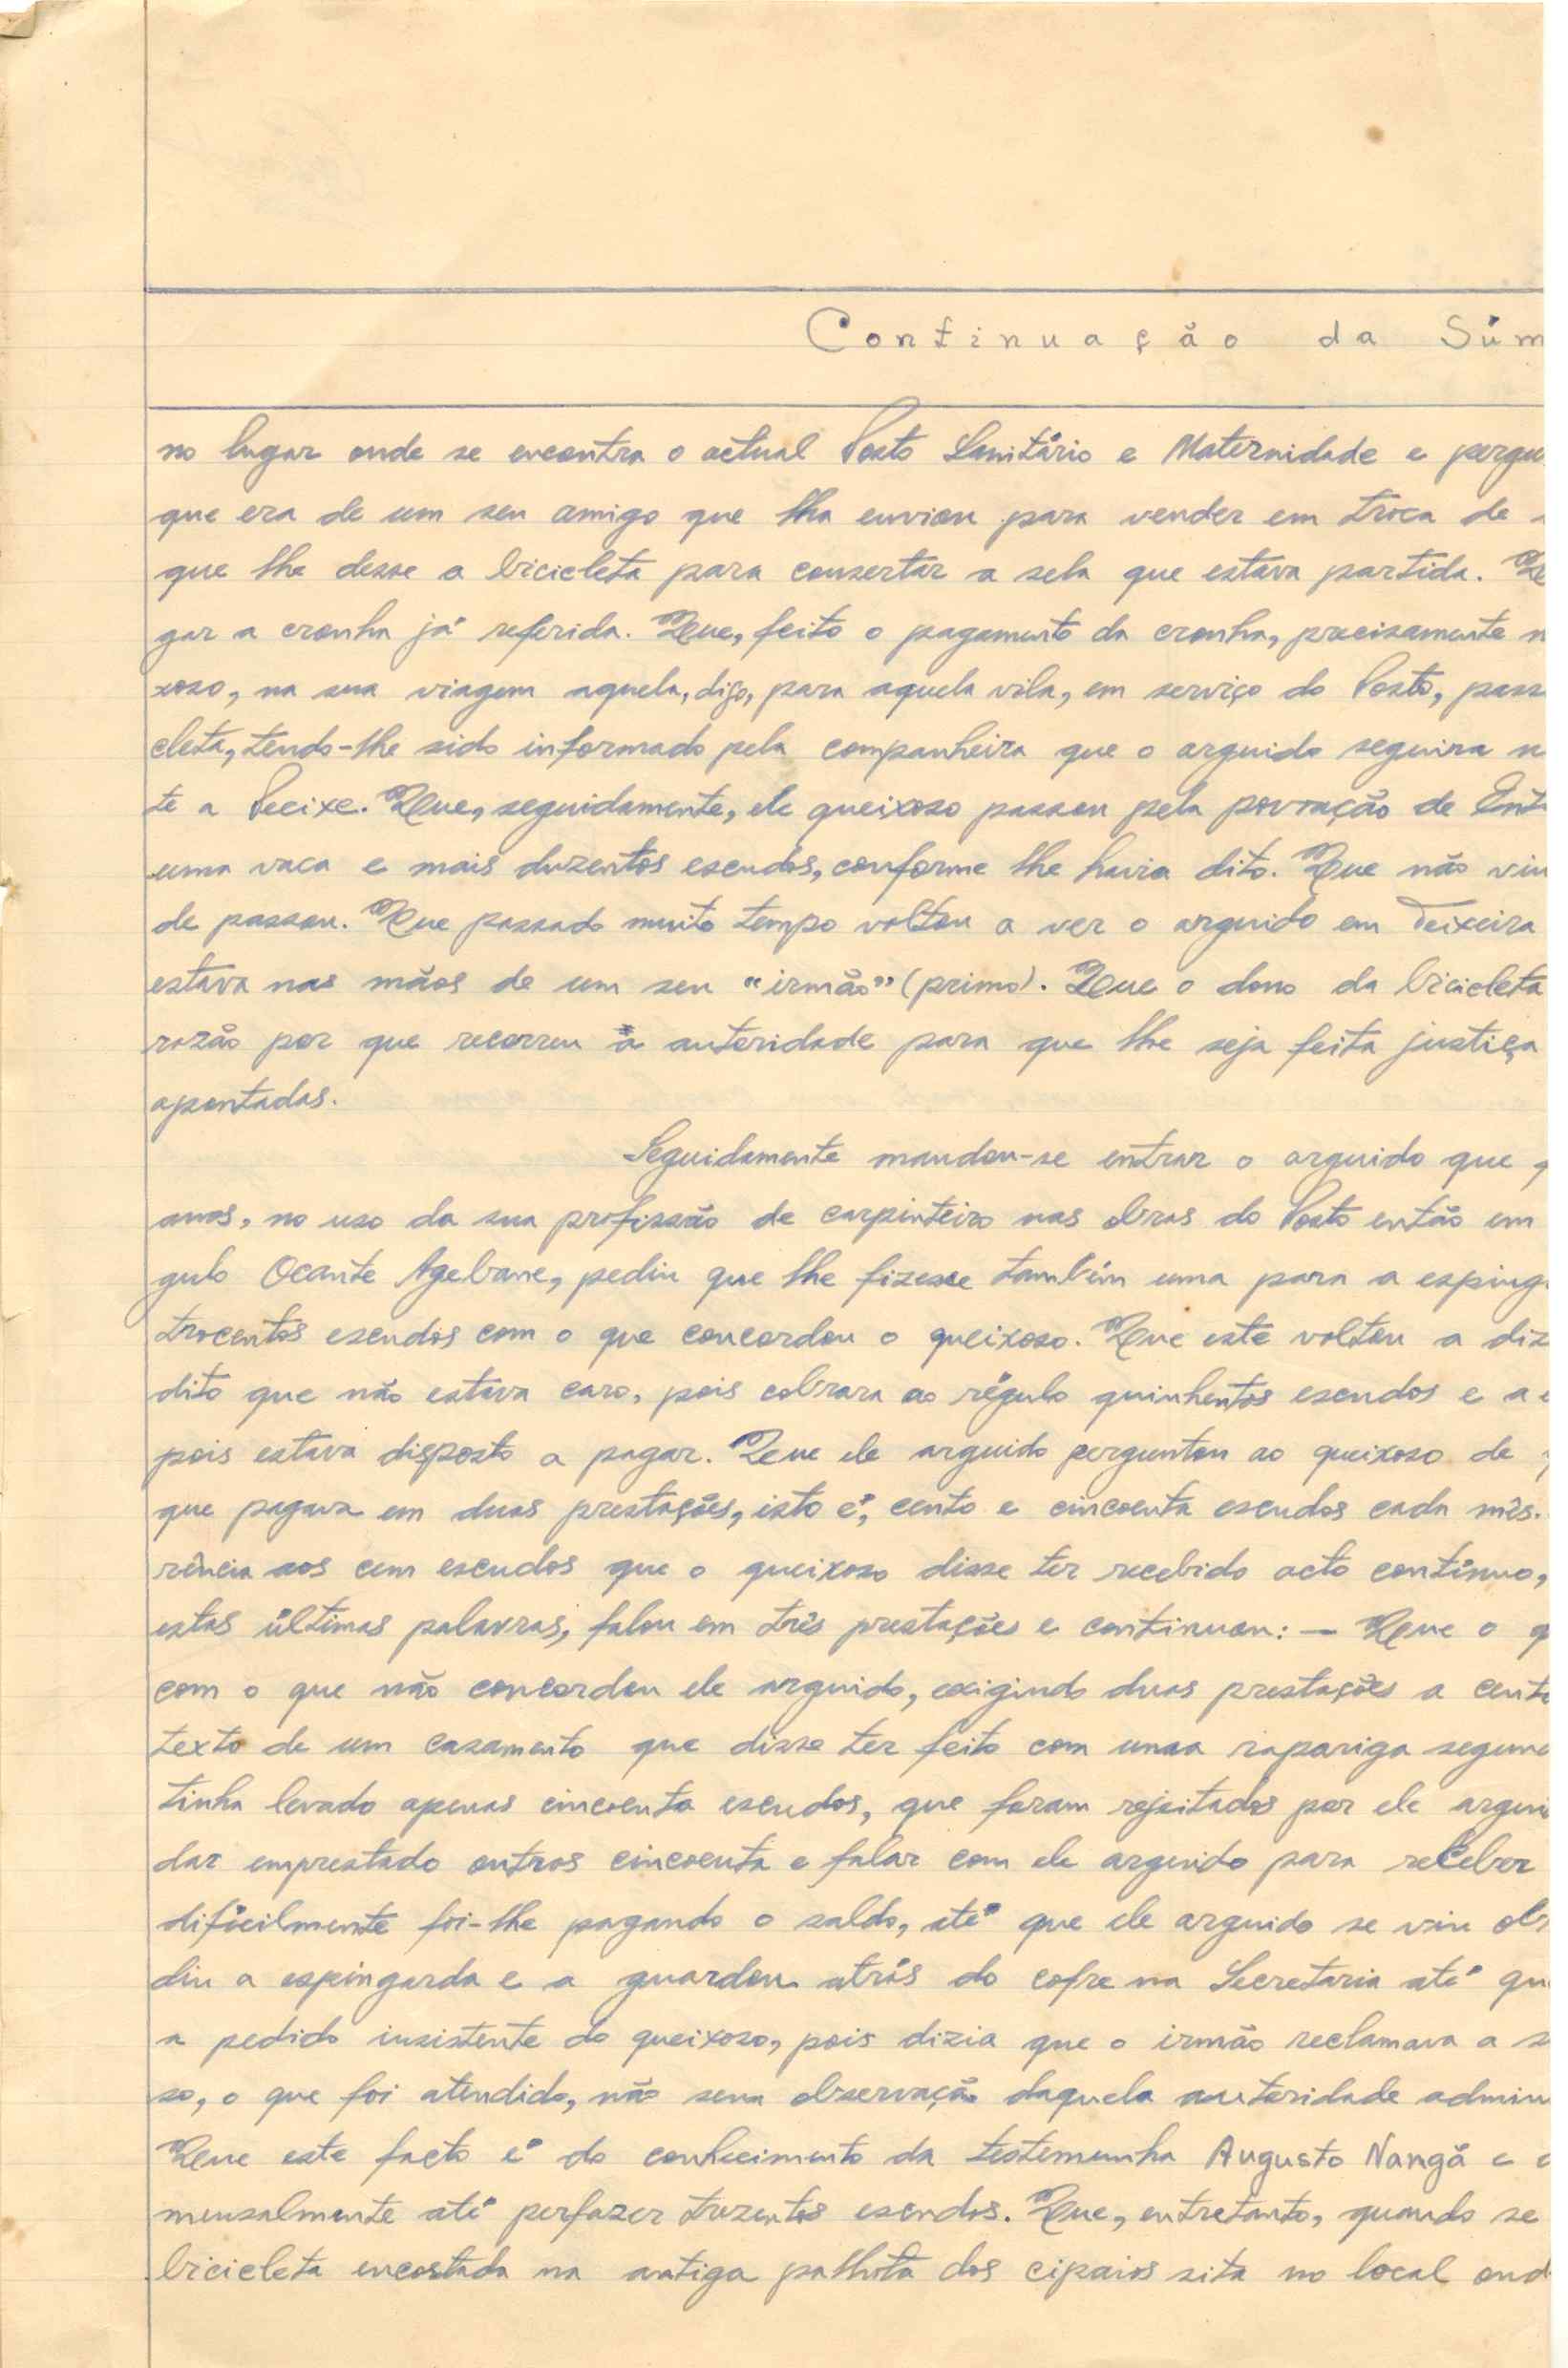 Continuação da Súm
no lugar onde se encontra o actual Posto Sanitário e Maternidade e pergu
que era de um seu amigo que lha enviou para vender em troca de
que lhe desse a bicicleta para consertar a sela que estava partida.
gar a cronha já referida. Que, feito o pagamento da cronha, precisamente n
xoso, na sua viagem aquela, digo, para aquela vila, em serviço do Posto, pass
cleta, tendo-lhe sido informado pela companheira que o arguido seguira n
te a Pecixe. Que, seguidamente, ele queixoso passou pela povoação de Ent
uma vaca e mais duzentos escudos, conforme lhe havia dito. Que não viu
de passou. Que passado muito tempo voltou a ver o arguido em Teixeira
estava nas mãos de um seu "irmão" (primo). Que o dono da bicicleta
razão por que recorreu à autoridade para que lhe seja feita justiça
apontadas.
Seguidamente mandou-se entrar o arguido que
anos, no uso da sua profissão de carpinteiro nas obras do Posto então em
gulo Ocante Agebane, pediu que lhe fizesse também uma para a esping
trocentos escudos com o que concordou o queixoso. Que este voltou a diz
dito que não estava caro, pois cobrara ao régulo quinhentos escudos e a
pois estava disposto a pagar. Que ele arguido perguntou ao queixoso de
que pagava em duas prestações, isto é, cento e cincoenta escudos cada mês.
rência aos cem escudos que o queixoso disse ter recebido acto contínuo,
estas últimas palavras, falou em três prestações e continuou: — Que o q
com o que não concordou ele arguido, exigindo duas prestações a cento
texto de um casamento que disse ter feito com uma rapariga segund
tinha levado apenas cincoenta escudos, que foram rejeitados por ele argui
dar emprestado outros cincoenta e falar com ele arguido para receber
dificilmente foi-lhe pagando o saldo, até que ele arguido se viu ob
diu a espingarda e a guardou atrás do cofre na Secretaria até qu
a pedido insistente do queixoso, pois dizia que o irmão reclamava a s
so, o que foi atendido, não sem observação daquela autoridade admin
Que este facto é do conhecimento da testemunha Augusto Nangã e
mensalmente até perfazer trezentos escudos. Que, entretanto, quando se
bicicleta encostada na antiga palhota dos cipaios sita no local ond